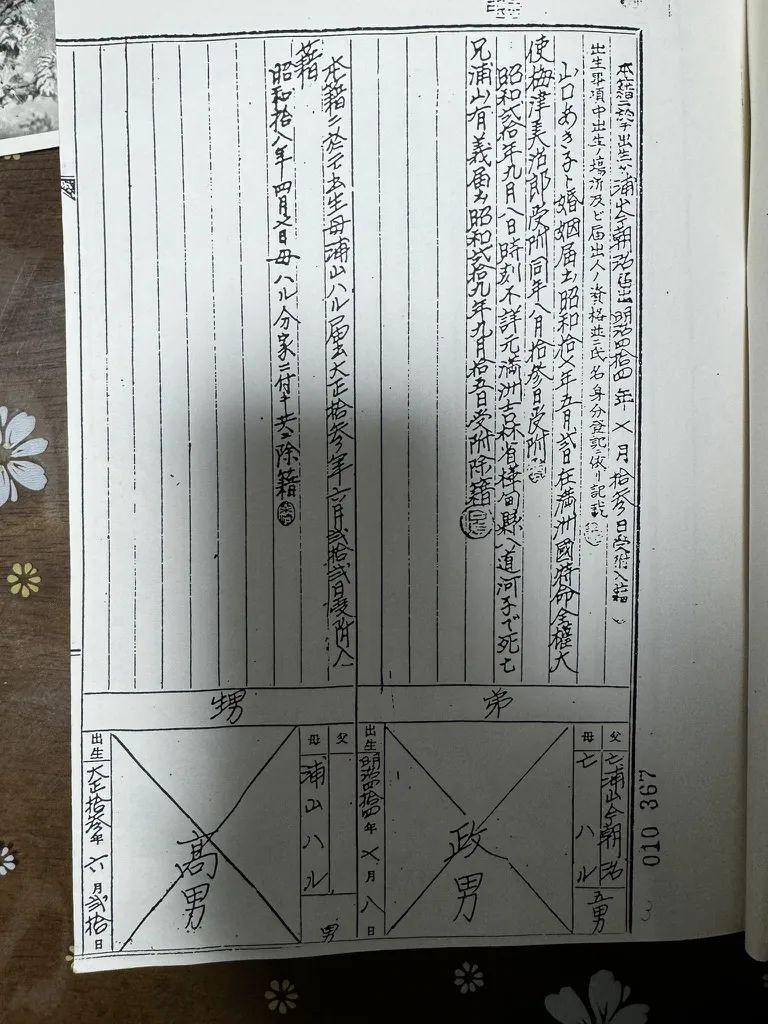 本籍ニ於テ出生父浦山今朝弥届出明治四拾四年七月拾参日受附入籍
出生事項中出生ノ場所及ビ届出人ノ資格並ニ氏名身分登記ニ依リ記載
山口あき子ト婚姻届出昭和拾六年五月弐日在満洲國特命全権大
使梅津美治郎受附同年八月拾参日受附
昭和弐拾年九月八日時刻不詳元満洲吉林省樺甸縣八道河子で死亡
兄浦山有義届出昭和弐拾九年九月拾五日受附除籍
弟
父
亡浦山今朝弥
母
亡ハル
五男
政男
出生
明治四拾四年七月八日
本籍ニ於テ出生母浦山ハル届出大正拾参年六月弐拾弐日受附入
籍
昭和拾八年四月七日母ハル分家ニ付キ共ニ除籍
甥
父
母
浦山ハル
男
高男
出生
大正拾参年六月弐拾日
010 367
3